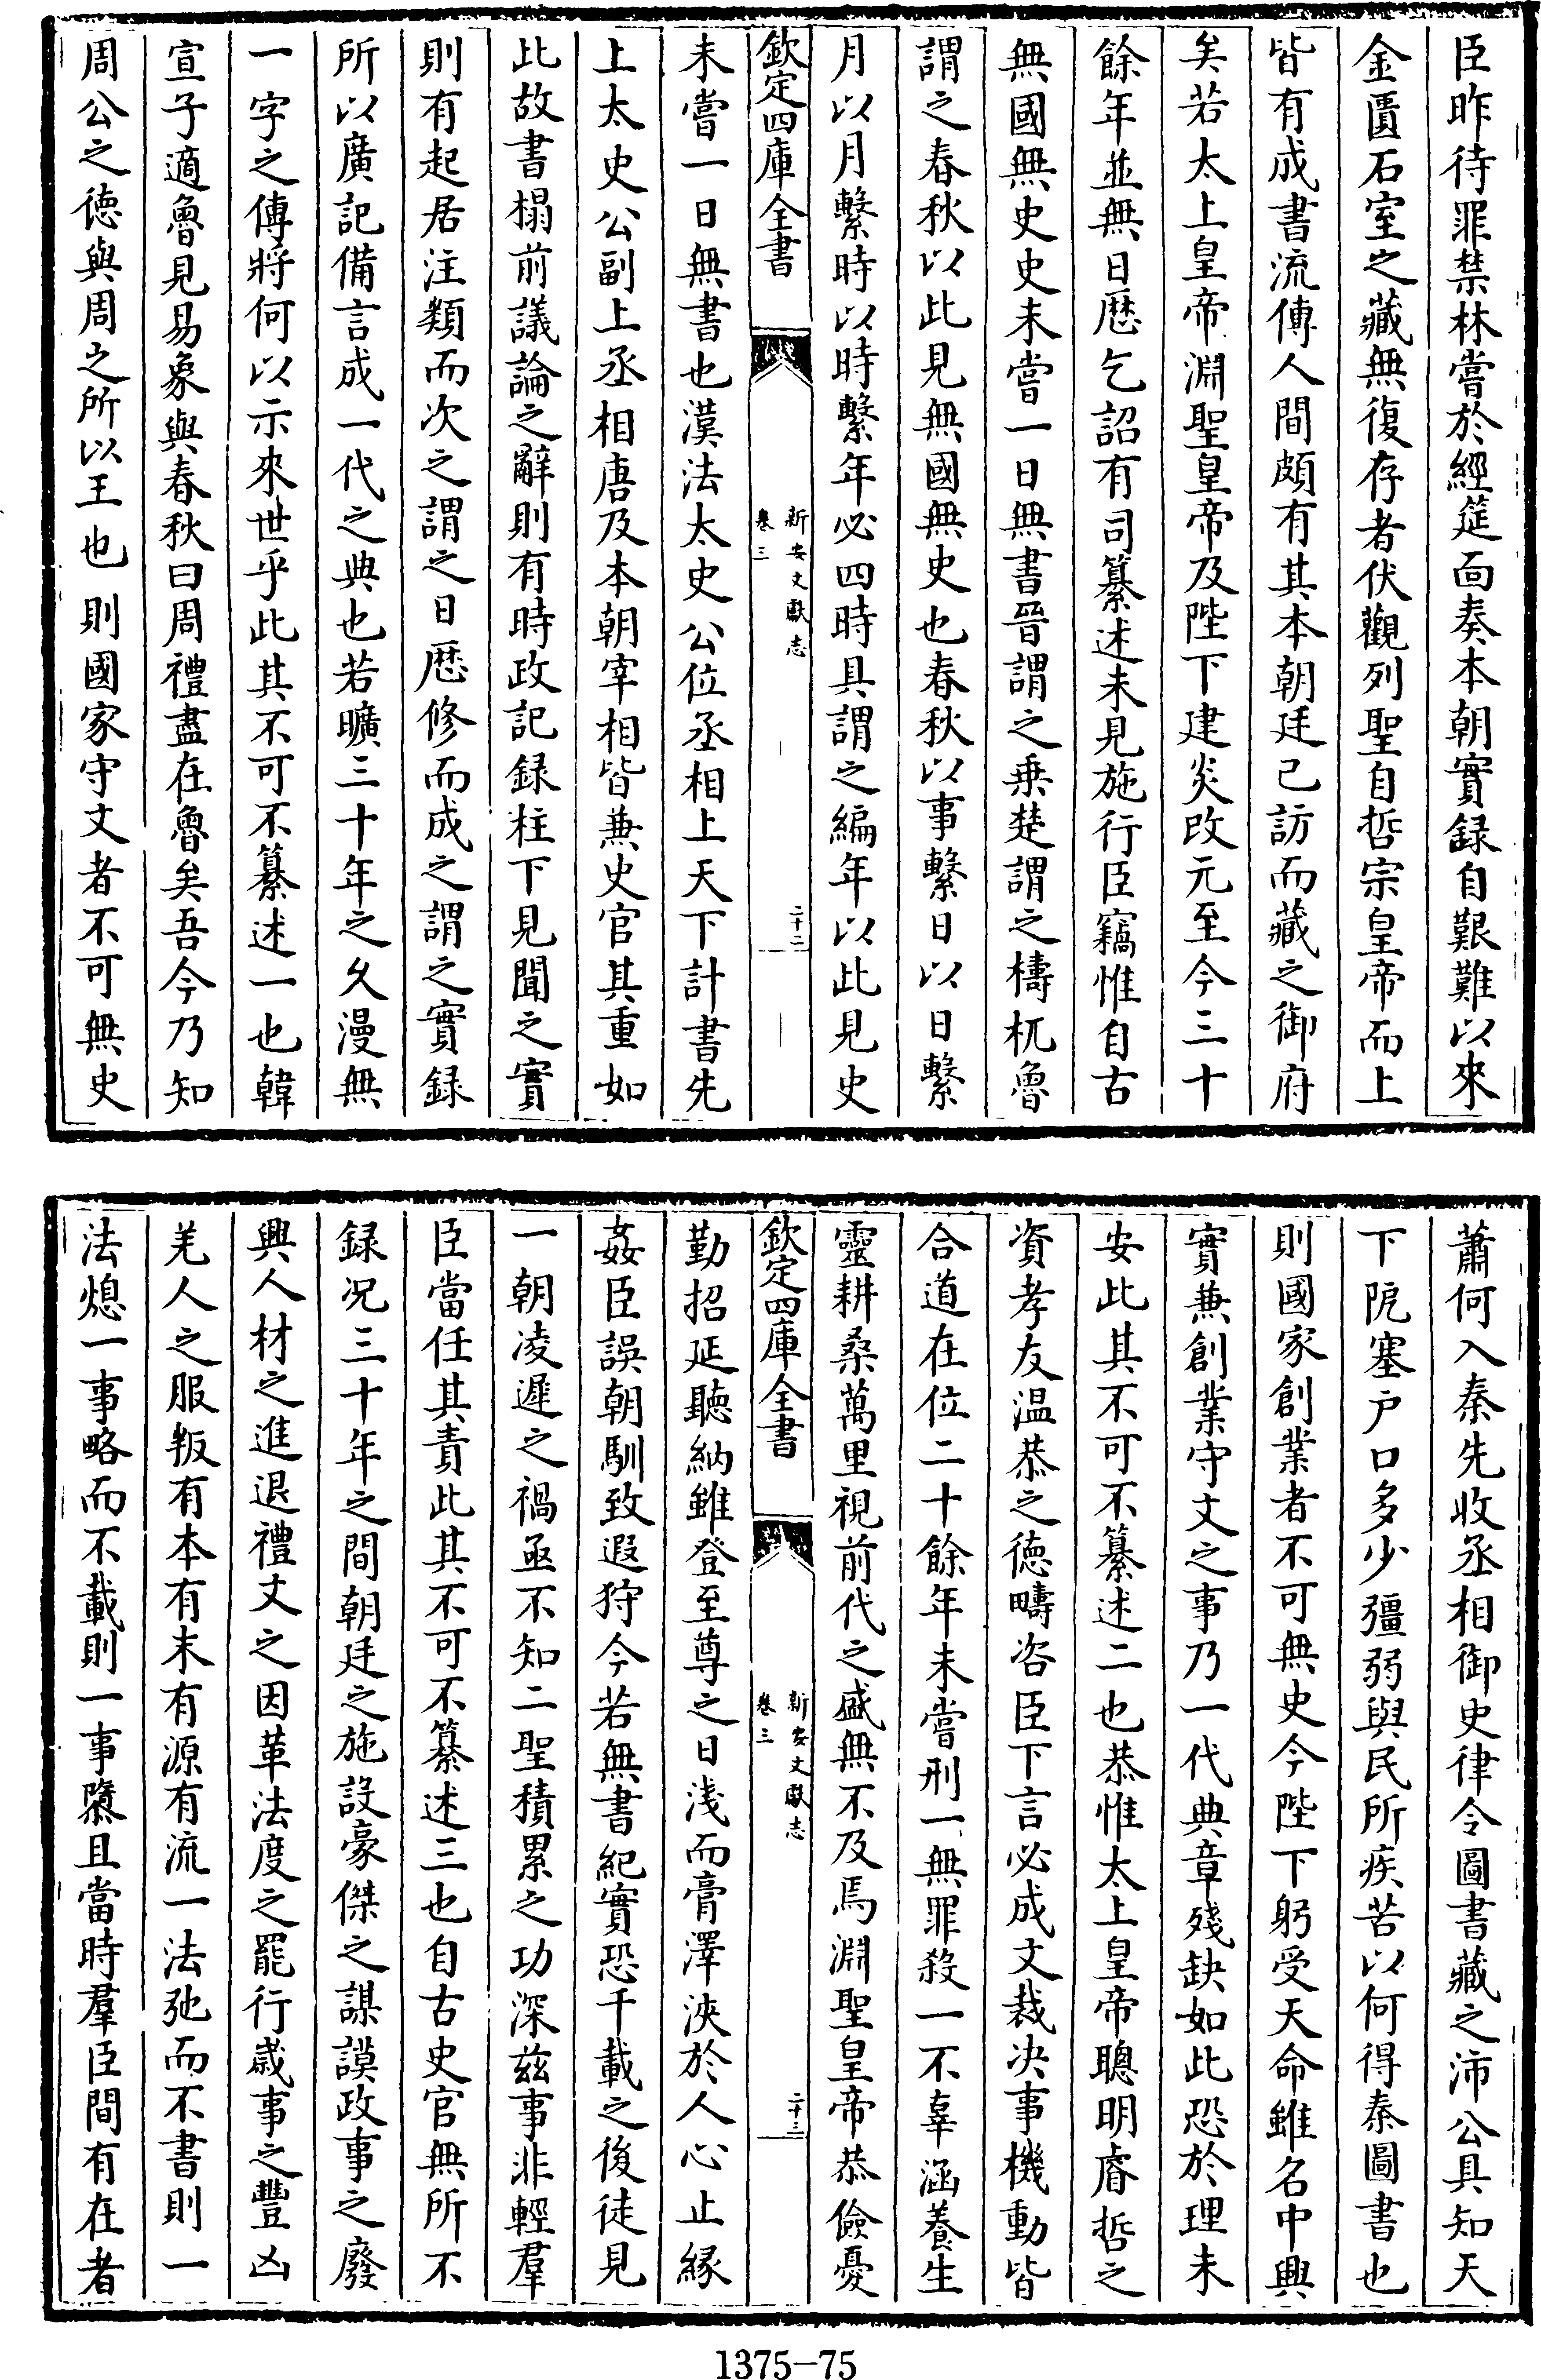 臣昨待罪禁林嘗於經筵面奏本朝實録自艱難以來
金匱石室之藏無復存者伏觀列聖自哲宗皇帝而上
皆有成書流傳人間頗有其本朝廷已訪而藏之御府
矣若太上皇帝淵聖皇帝及陛下建炎改元至今三十
餘年並無日厯乞詔有司纂述未見施行臣竊惟自古
無國無史史未嘗一日無書晉謂之乗楚謂之檮杌魯
謂之春秋以此見無國無史也春秋以事繫日以日繫
月以月繫時以時繫年必四時具謂之編年以此見史
欽定四庫全書
新安文獻志
卷三
二十二
未嘗一日無書也漢法太史公位丞相上天下計書先
上太史公副上丞相唐及本朝宰相皆兼史官其重如
此故書榻前議論之辭則有時政記録柱下見聞之實
則有起居注類而次之謂之日厯修而成之謂之實録
所以廣記備言成一代之典也若曠三十年之久漫無
一字之傳將何以示來世乎此其不可不纂述一也韓
宣子適魯見易象與春秋曰周禮盡在魯矣吾今乃知
周公之徳與周之所以王也則國家守文者不可無史
蕭何入秦先收丞相御史律令圖書藏之沛公具知天
下阸塞户口多少彊弱與民所疾苦以何得秦圖書也
則國家創業者不可無史今陛下躬受天命雖名中興
實兼創業守文之事乃一代典章殘缺如此恐於理未
安此其不可不纂述二也恭惟太上皇帝聰明睿哲之
資孝友温恭之徳疇咨臣下言必成文裁决事機動皆
合道在位二十餘年未嘗刑一無罪殺一不辜涵養生
靈耕桑萬里視前代之盛無不及焉淵聖皇帝恭儉憂
欽定四庫全書
新安文獻志
卷三
二十三
勤招延聽納雖登至尊之日淺而膏澤浹於人心止緣
姦臣誤朝馴致遐狩今若無書紀實恐千載之後徒見
一朝凌遲之禍亟不知二聖積累之功深兹事非輕羣
臣當任其責此其不可不纂述三也自古史官無所不
録况三十年之間朝廷之施設豪傑之謀謨政事之廢
興人材之進退禮文之因革法度之罷行歳事之豐凶
羌人之服叛有本有末有源有流一法弛而不書則一
法熄一事略而不載則一事隳且當時羣臣間有在者
1375-75